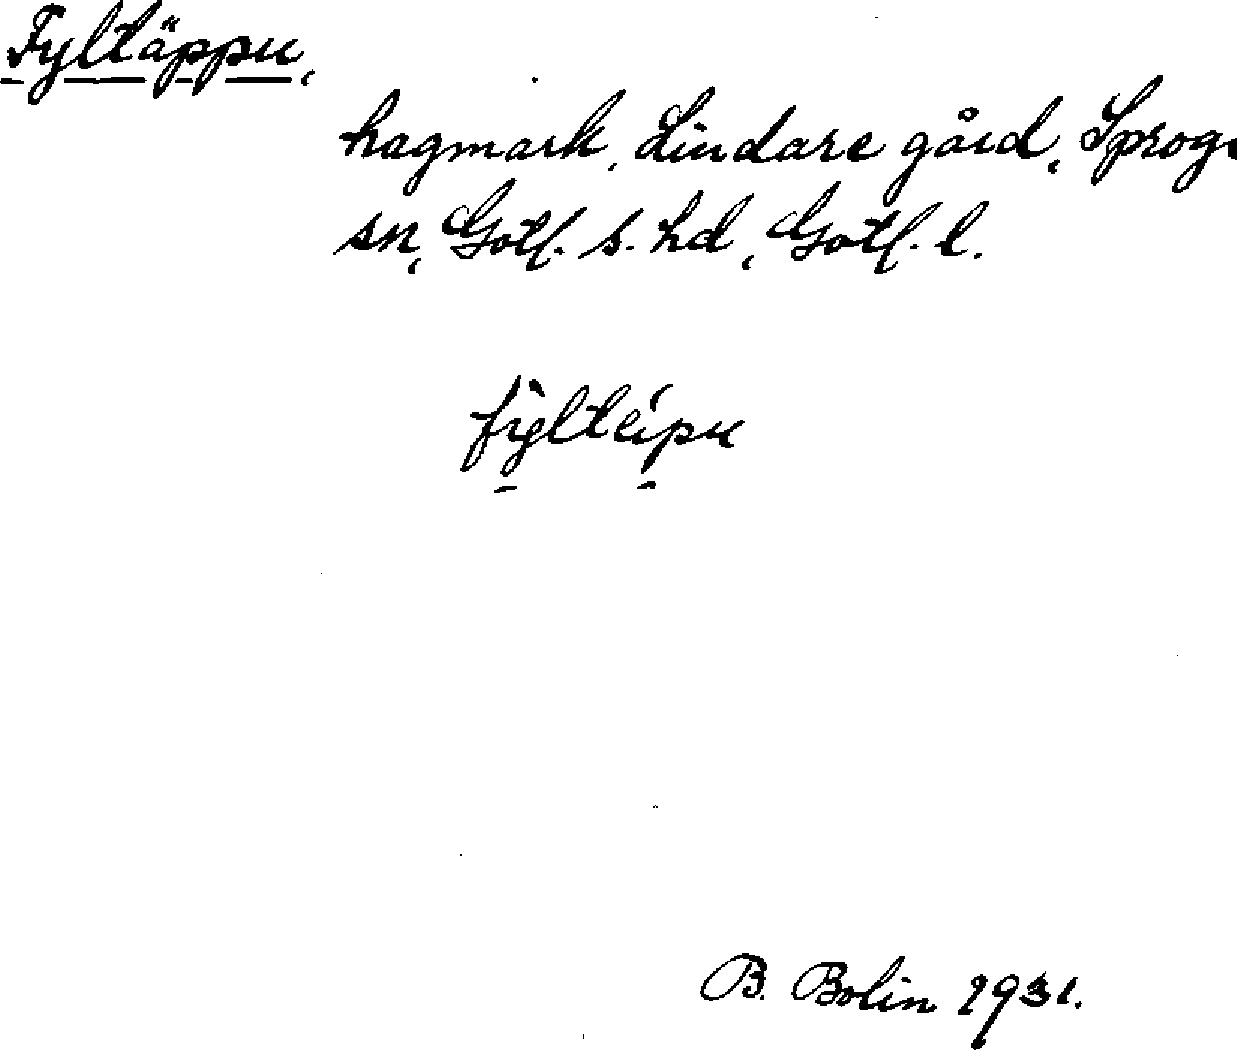 Fyltäppu,
hagmark, Lindare gård, Sproge
sn, Gotl. s. hd, Gotl. l.
fỳltépu
B. Bolin 1931.